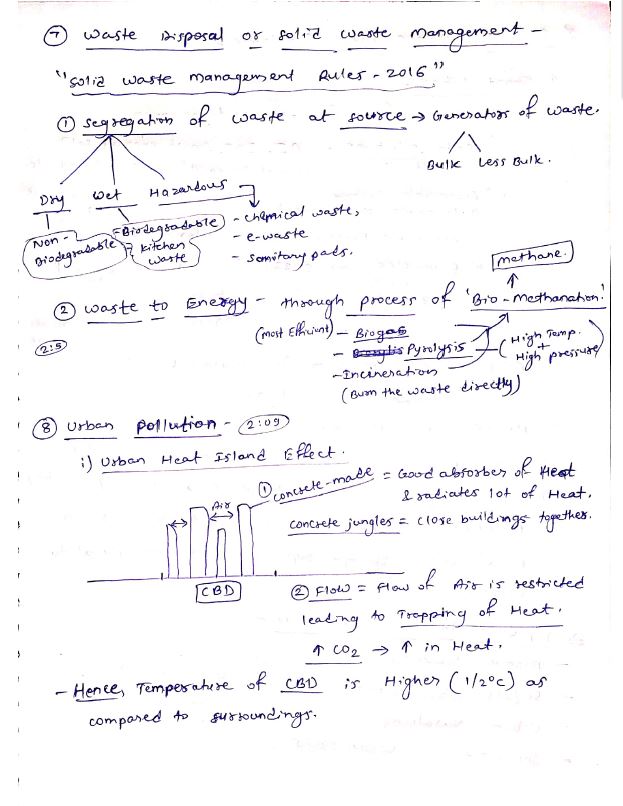 ⑦ Waste Disposal or Solid Waste Management -
"Solid Waste Management Rules - 2016"
① Segregation of waste at source → Generators of waste.
Bulk Less Bulk.
Dry Wet Hazardous
Non-Biodegradable
= Biodegradable
= Kitchen waste
- Chemical waste,
- e-waste
- Sanitary pads.
methane.
② Waste to Energy - through process of 'Bio-Methanation'
(Most Efficient) - Biogas
2:5
- Pyrolysis - (High Temp. + High pressure)
- Incineration
(Burn the waste directly)
⑧ Urban Pollution - 2:09
i) Urban Heat Island Effect.
① Concrete-made = Good absorber of Heat
& radiates lot of Heat.
Air
Concrete jungles = close buildings together.
CBD
② Flow = Flow of Air is restricted
leading to Trapping of Heat.
↑ CO2 → ↑ in Heat.
- Hence, Temperature of CBD is Higher (1/2°C) as
compared to surroundings.